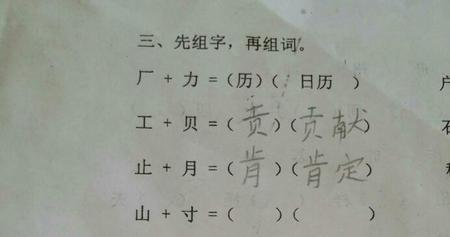 三、先组字，再组词。
厂 + 力 =(历)( 日历 )
工 + 贝 =(贡)(贡献)
止 + 月 =(肯)(肯定)
山 + 寸 =( )( )